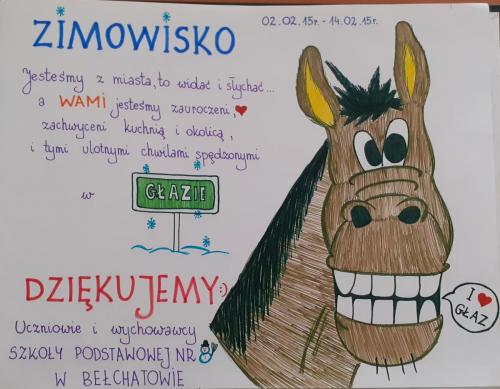 ZIMOWISKO
02.02.15r. - 14.02.15r.
Jesteśmy z miasta, to widać i słychać...
a WAMI jesteśmy zauroczeni, ❤
zachwyceni kuchnią i okolicą,
i tymi ulotnymi chwilami spędzonymi
w GŁAZIE
DZIĘKUJEMY :)
Uczniowie i wychowawcy
SZKOŁY PODSTAWOWEJ NR 8
W BEŁCHATOWIE
I ❤
GŁAZ